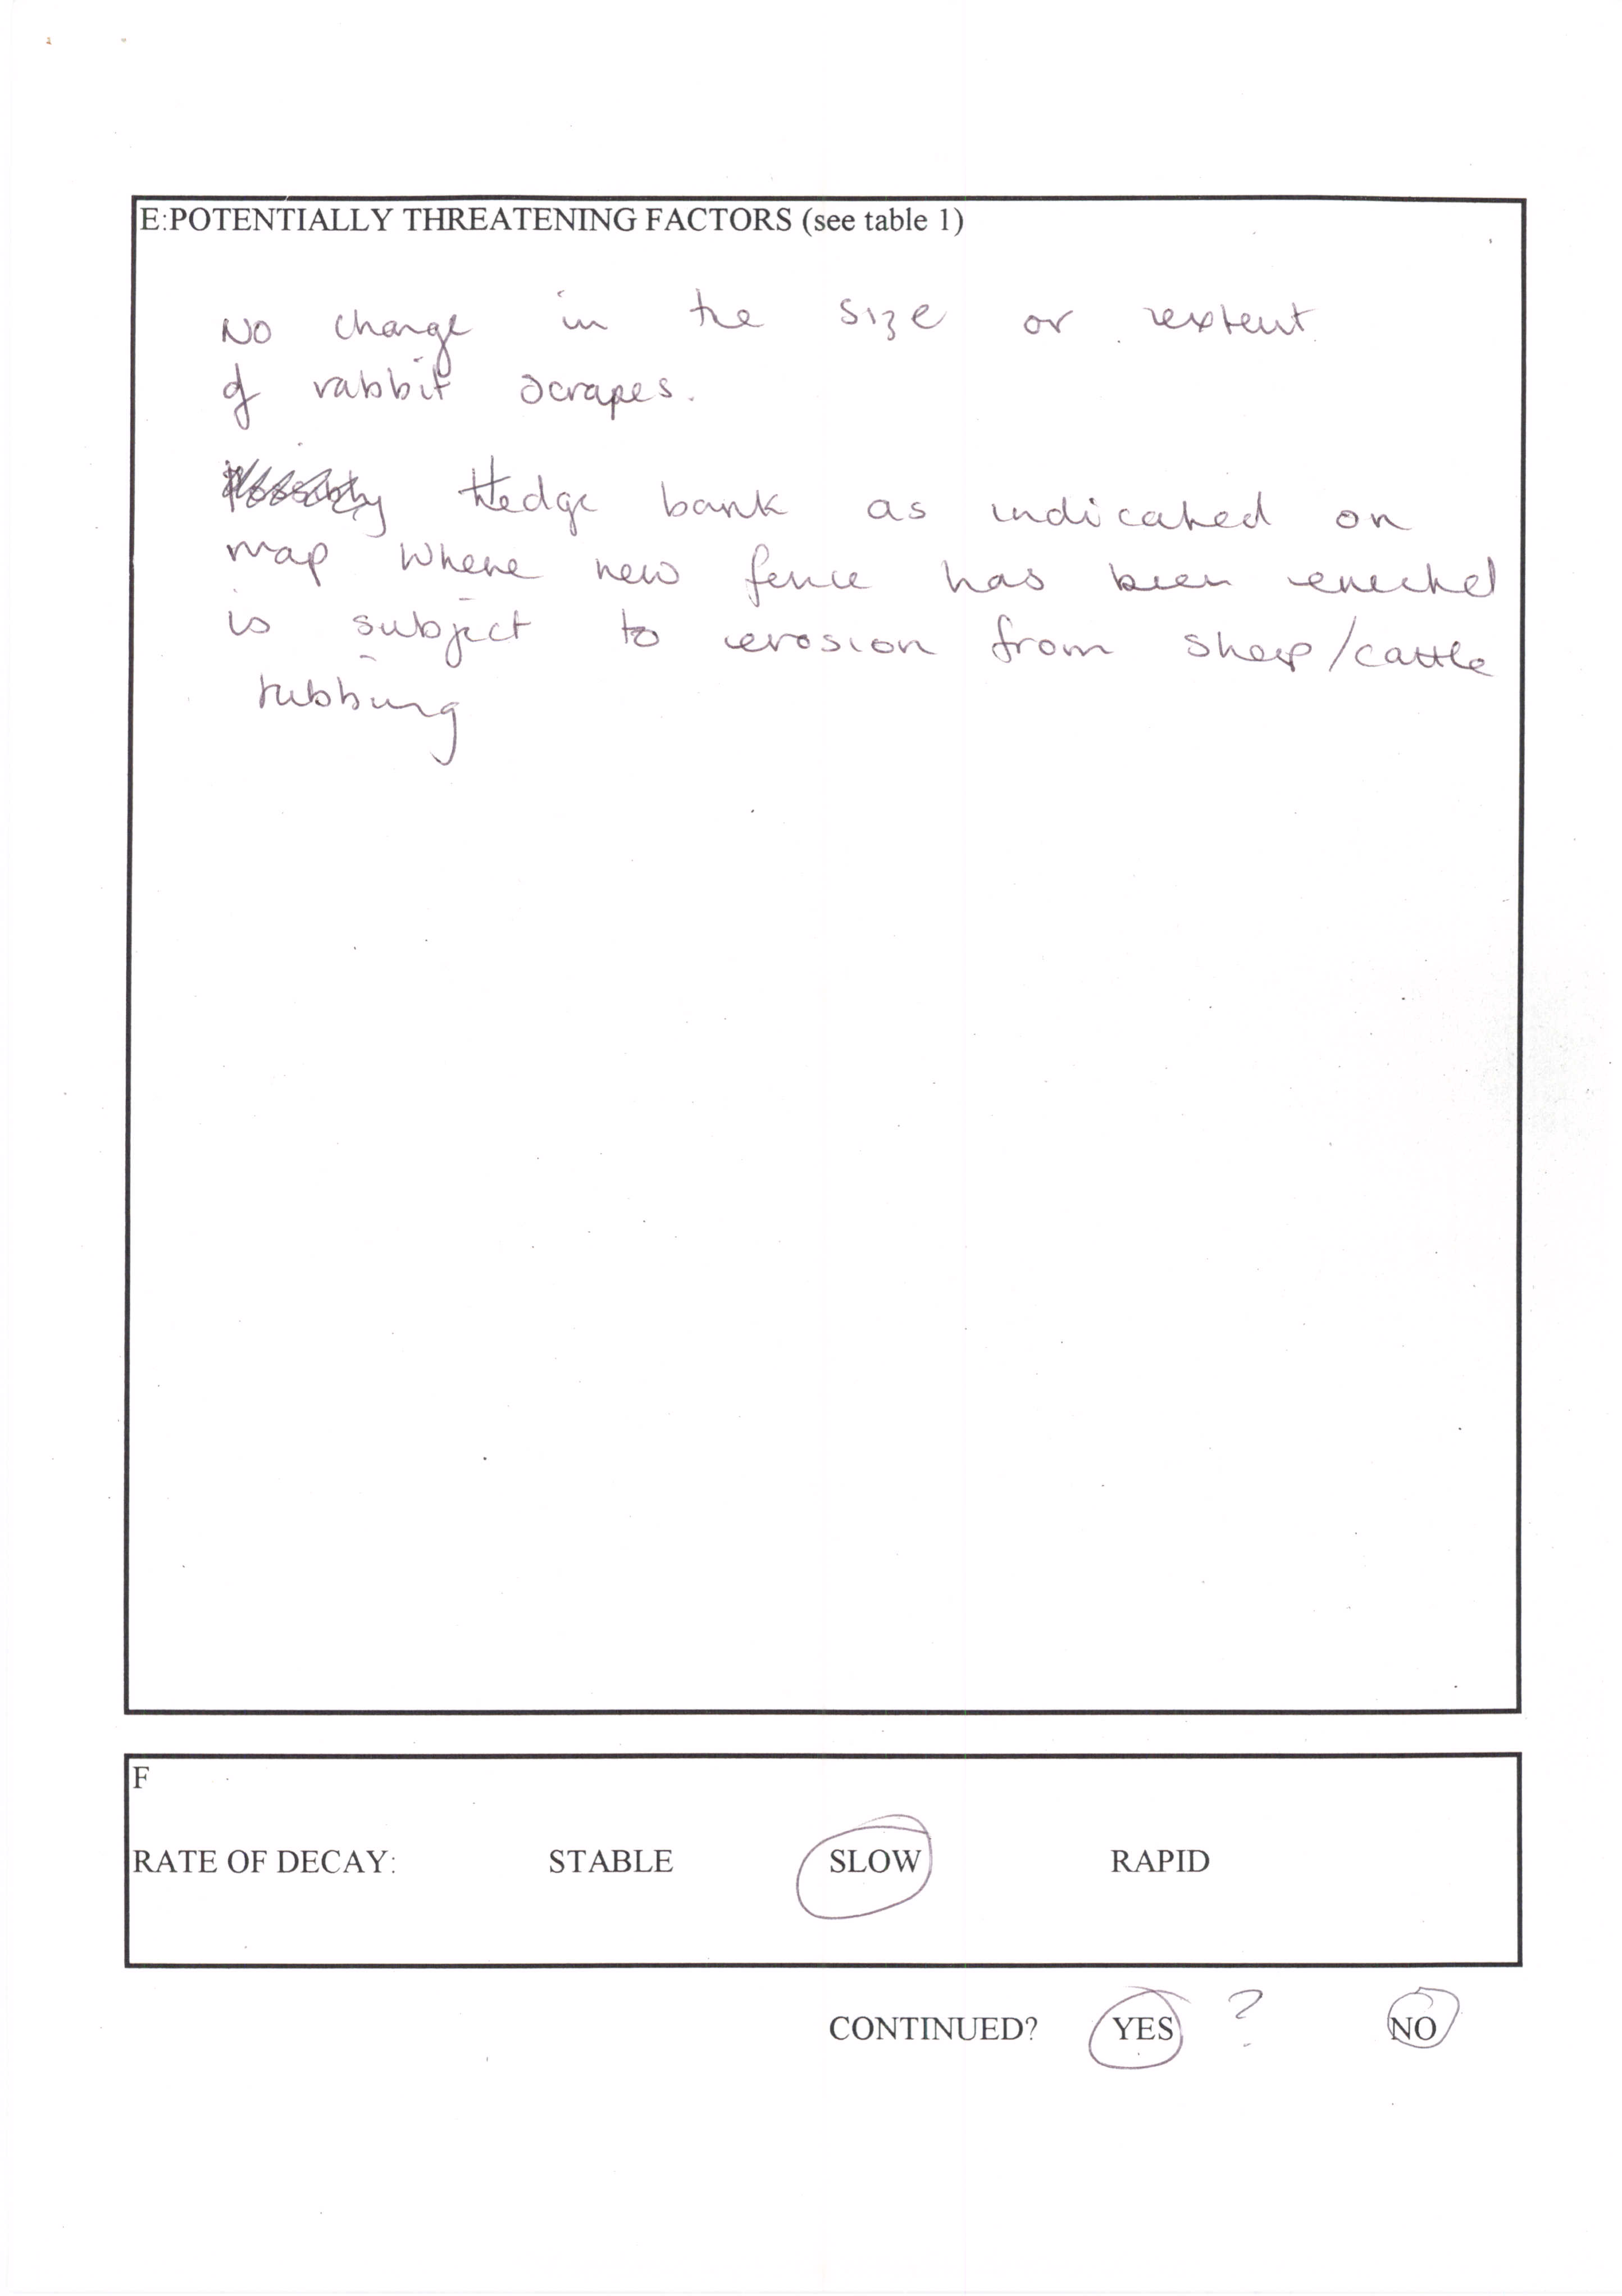 E:POTENTIALLY THREATENING FACTORS (see table 1)
No change in the size or extent
of rabbit scrapes.
Hedge bank as indicated on
map where new fence has been erected
is subject to erosion from sheep/cattle
rubbing
F
RATE OF DECAY: STABLE SLOW RAPID
CONTINUED? YES ? NO